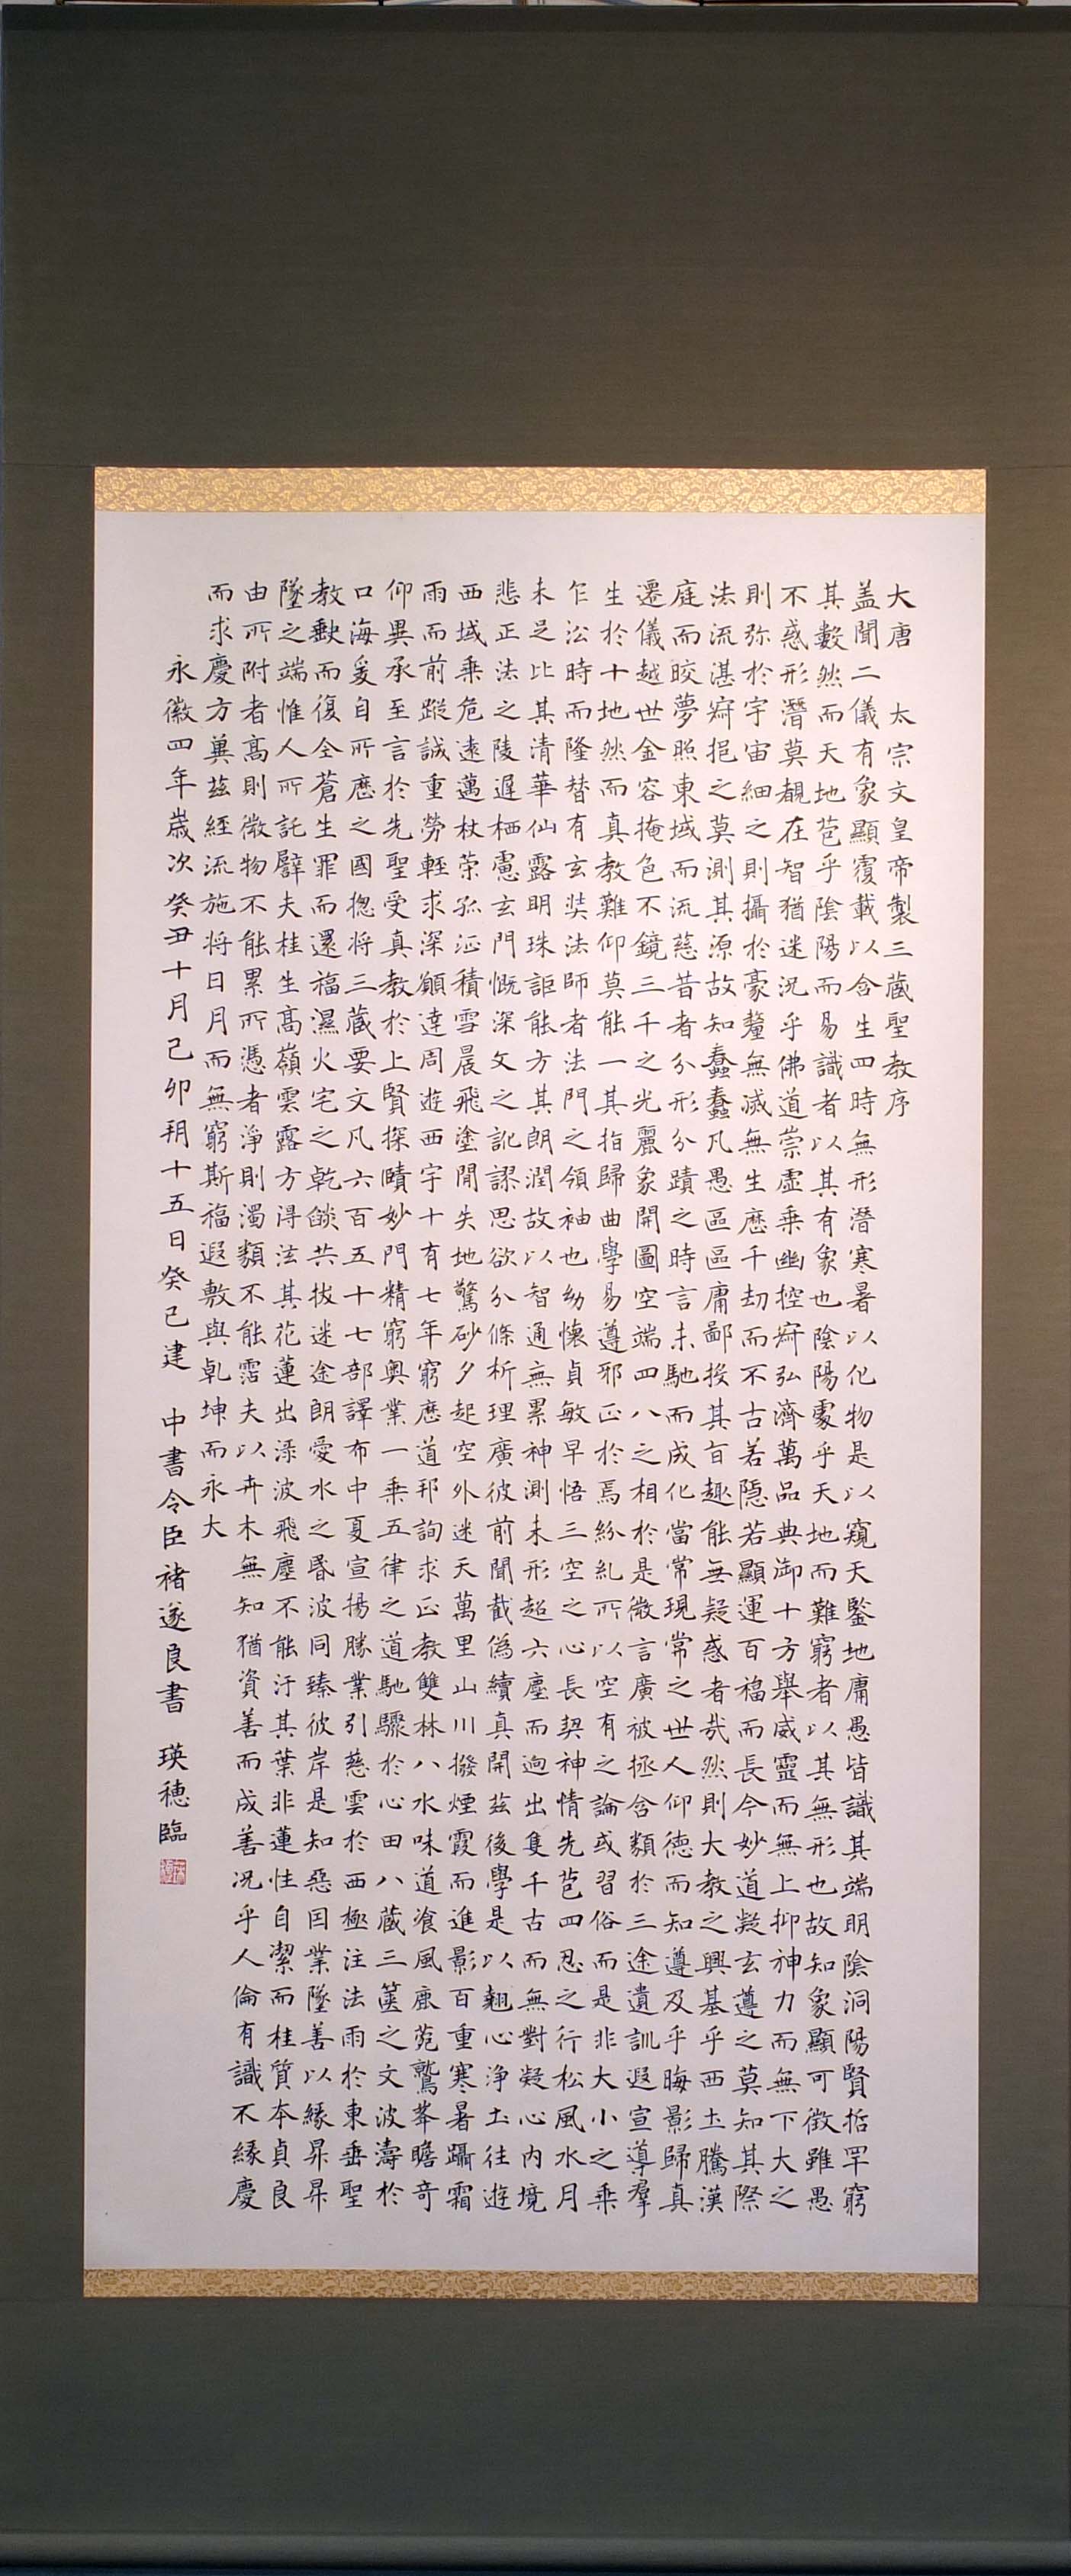 大唐　太宗文皇帝製三蔵聖教序
盖聞二儀有象顯覆載以含生四時無形潛寒暑以化物是以窺天鑒地庸愚皆識其端明陰洞陽賢哲罕窮
其數然而天地苞乎陰陽而易識者以其有象也陰陽處乎天地而難窮者以其無形也故知象顯可徵雖愚
不惑形潛莫覩在智猶迷況乎佛道崇虛乗幽控寂弘濟萬品典御十方舉威靈而無上抑神力而無下大之
則弥於宇宙細之則攝於豪釐無滅無生歷千劫而不古若隱若顯運百福而長今妙道凝玄遵之莫知其際
法流湛寂挹之莫測其源故知蠢蠢凡愚區區庸鄙投其旨趣能無疑惑者哉然則大教之興基乎西土騰漢
庭而皎夢照東域而流慈昔者分形分蹟之時言未馳而成化當常現常之世人仰德而知遵及乎晦影歸真
遷儀越世金容掩色不鏡三千之光麗象開圖空端四八之相於是微言廣被拯含類於三途遺訓遐宣導羣
生於十地然而真教難仰莫能一其指歸曲學易遵邪正於焉紛糺所以空有之論或習俗而是非大小之乗
乍沿時而隆替有玄奘法師者法門之領袖也幼懷貞敏早悟三空之心長契神情先苞四忍之行松風水月
未足比其清華仙露明珠詎能方其朗潤故以智通無累神測未形超六塵而迥出隻千古而無對凝心內境
悲正法之陵遲栖慮玄門慨深文之訛謬思欲分條析理廣彼前聞截偽續真開茲後學是以翹心淨土往遊
西域乗危遠邁杖策孤征積雪晨飛塗閒失地驚砂夕起空外迷天萬里山川撥煙霞而進影百重寒暑躡霜
雨而前蹤誠重勞輕求深願達周遊西宇十有七年窮歷道邦詢求正教雙林八水味道飡風鹿菀鷲峯瞻奇
仰異承至言於先聖受真教於上賢探賾妙門精窮奧業一乗五律之道馳驟於心田八蔵三篋之文波濤於
口海爰自所歷之國揔将三蔵要文凡六百五十七部譯布中夏宣揚勝業引慈雲於西極注法雨於東垂聖
教缺而復全蒼生罪而還福濕火宅之乾燄共拔迷途朗愛水之昏波同臻彼岸是知惡因業墜善以緣昇昇
墜之端惟人所託譬夫桂生高嶺雲露方得泫其花蓮出淥波飛塵不能汙其葉非蓮性自潔而桂質本貞良
由所附者高則微物不能累所憑者淨則濁類不能霑夫以卉木無知猶資善而成善況乎人倫有識不緣慶
而求慶方冀茲經流施将日月而無窮斯福遐敷與乾坤而永大
永徽四年歲次癸丑十月己卯朔十五日癸巳建　中書令臣褚遂良書　瑛穂臨